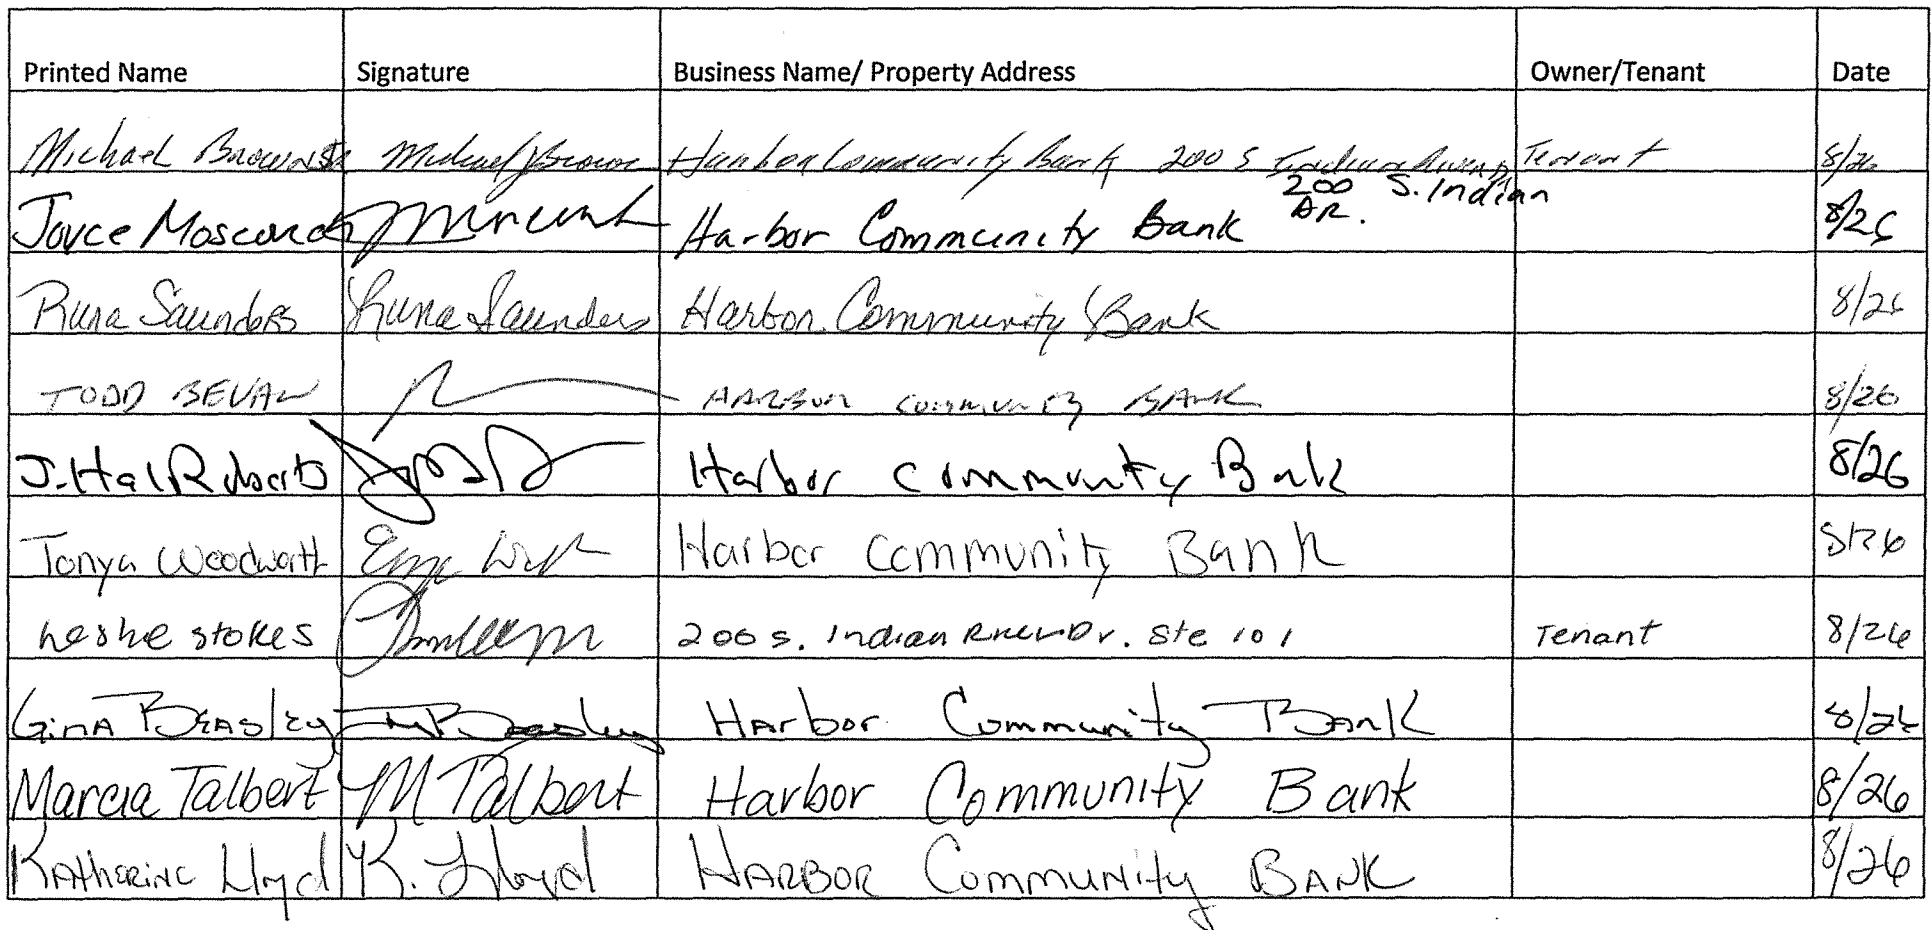 Printed Name Signature Business Name/ Property Address Owner/Tenant Date
Michael Brown Sr Michael J Brown Harbor Community Bank 200 S Indian River Dr Tenant 8/26
Joyce Harbor Community Bank 200 S. Indian DR. 8/26
Runa Saunders Runa Saunders Harbor Community Bank 8/26
TODD BEVAN HARBOR COMMUNITY BANK 8/26
J. Hal Roberts Harbor Community Bank 8/26
Tonya Woodworth Harbor Community Bank 8/26
Leslie Stokes 200 S. Indian River Dr. Ste 101 Tenant 8/26
Gina Beasley Beasley Harbor Community Bank 8/26
Marcia Talbert M Talbert Harbor Community Bank 8/26
Katherine Lloyd K. Lloyd HARBOR Community BANK 8/26